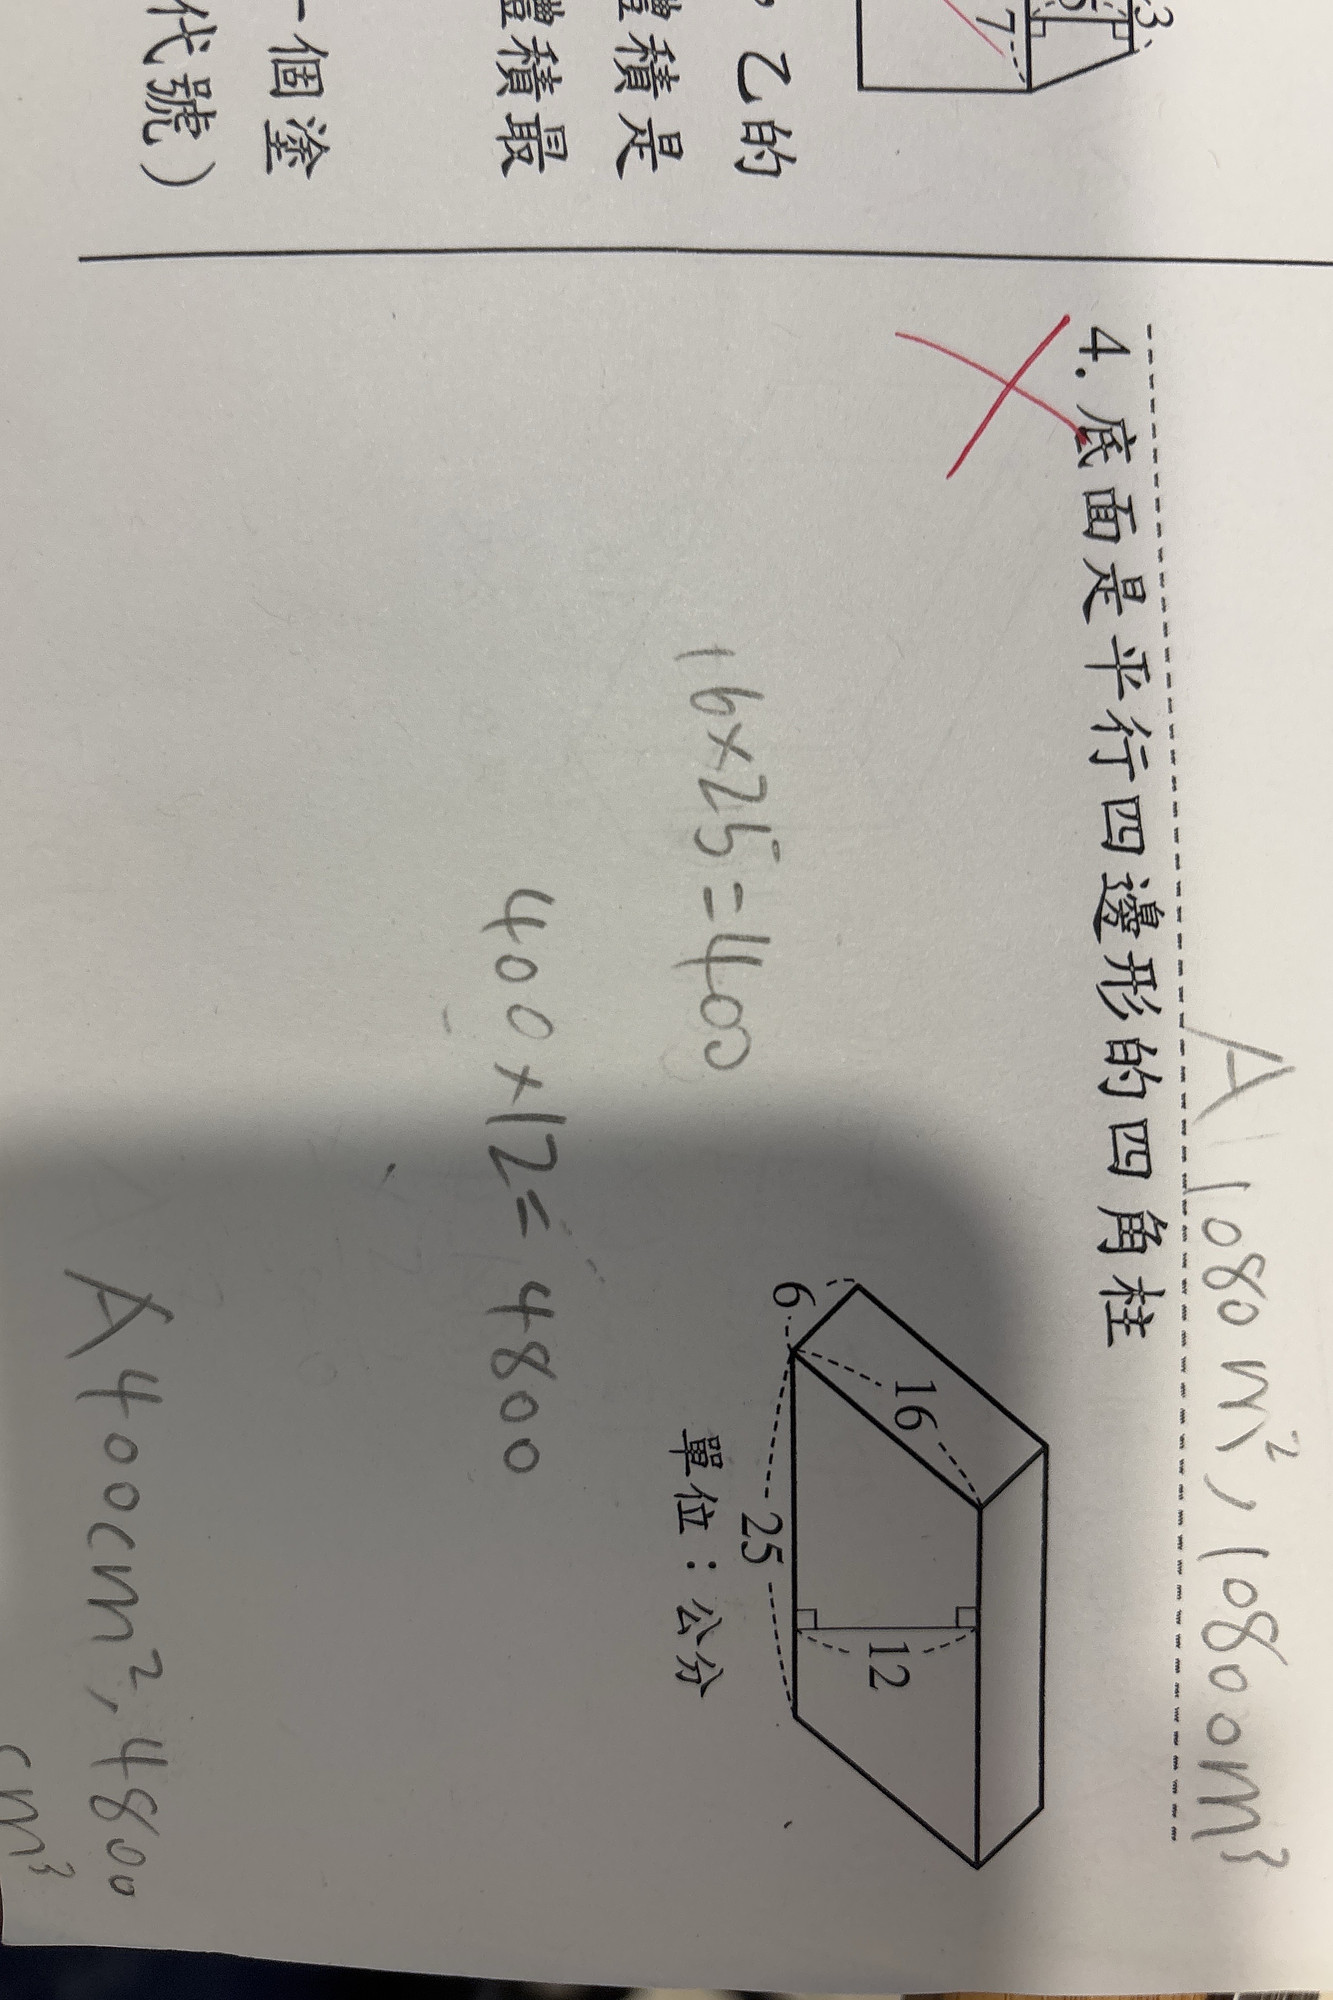 3
5
7
，乙的
體積是
體積最
一個塗
代號）
A 1080m²，10800m³
4. 底面是平行四邊形的四角柱
6
16
12
25
單位：公分
16×25=400
400×12=4800
A 400cm²，4800
cm³